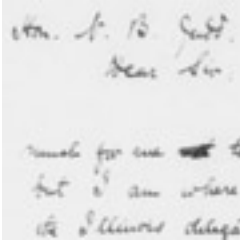 Hon. N. B. Judd.
Dear Sir.
much for me
but I am where
the Illinois delega